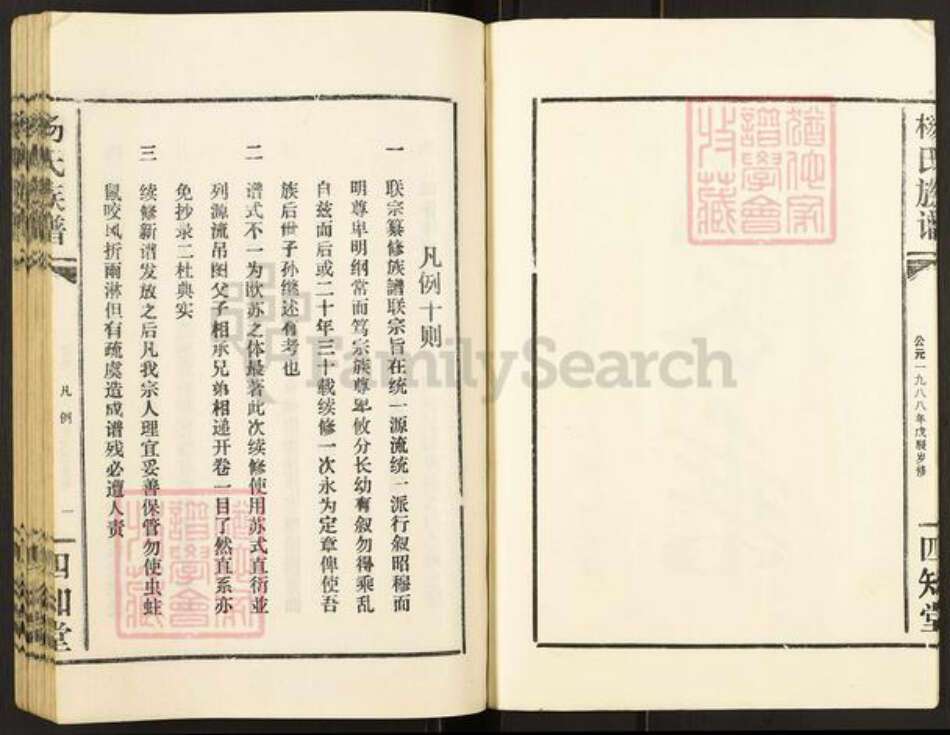 杨氏族谱
公元一九八八年戊辰岁修
四知堂
猶他家
譜學會
收藏
凡例十则
一 联宗纂修族譜联宗旨在统一源流统一派行叙昭穆而
明尊卑明纲常而笃宗族尊卑攸分长幼有叙勿得乘乱
自兹而后或二十年三十载续修一次永为定章俾使吾
族后世子孙继述有考也
二 谱式不一为欧苏之体最著此次续修使用苏式直衍並
列源流吊图父子相承兄弟相递开卷一目了然直系亦
免抄录二杜典实
三 续修新谱发放之后凡我宗人理宜妥善保管勿使虫蛀
鼠咬风折雨淋但有疏虞造成谱残必遭人责
猶他家
譜學會
收藏
杨氏族谱
凡例
一
四知堂
FamilySearch